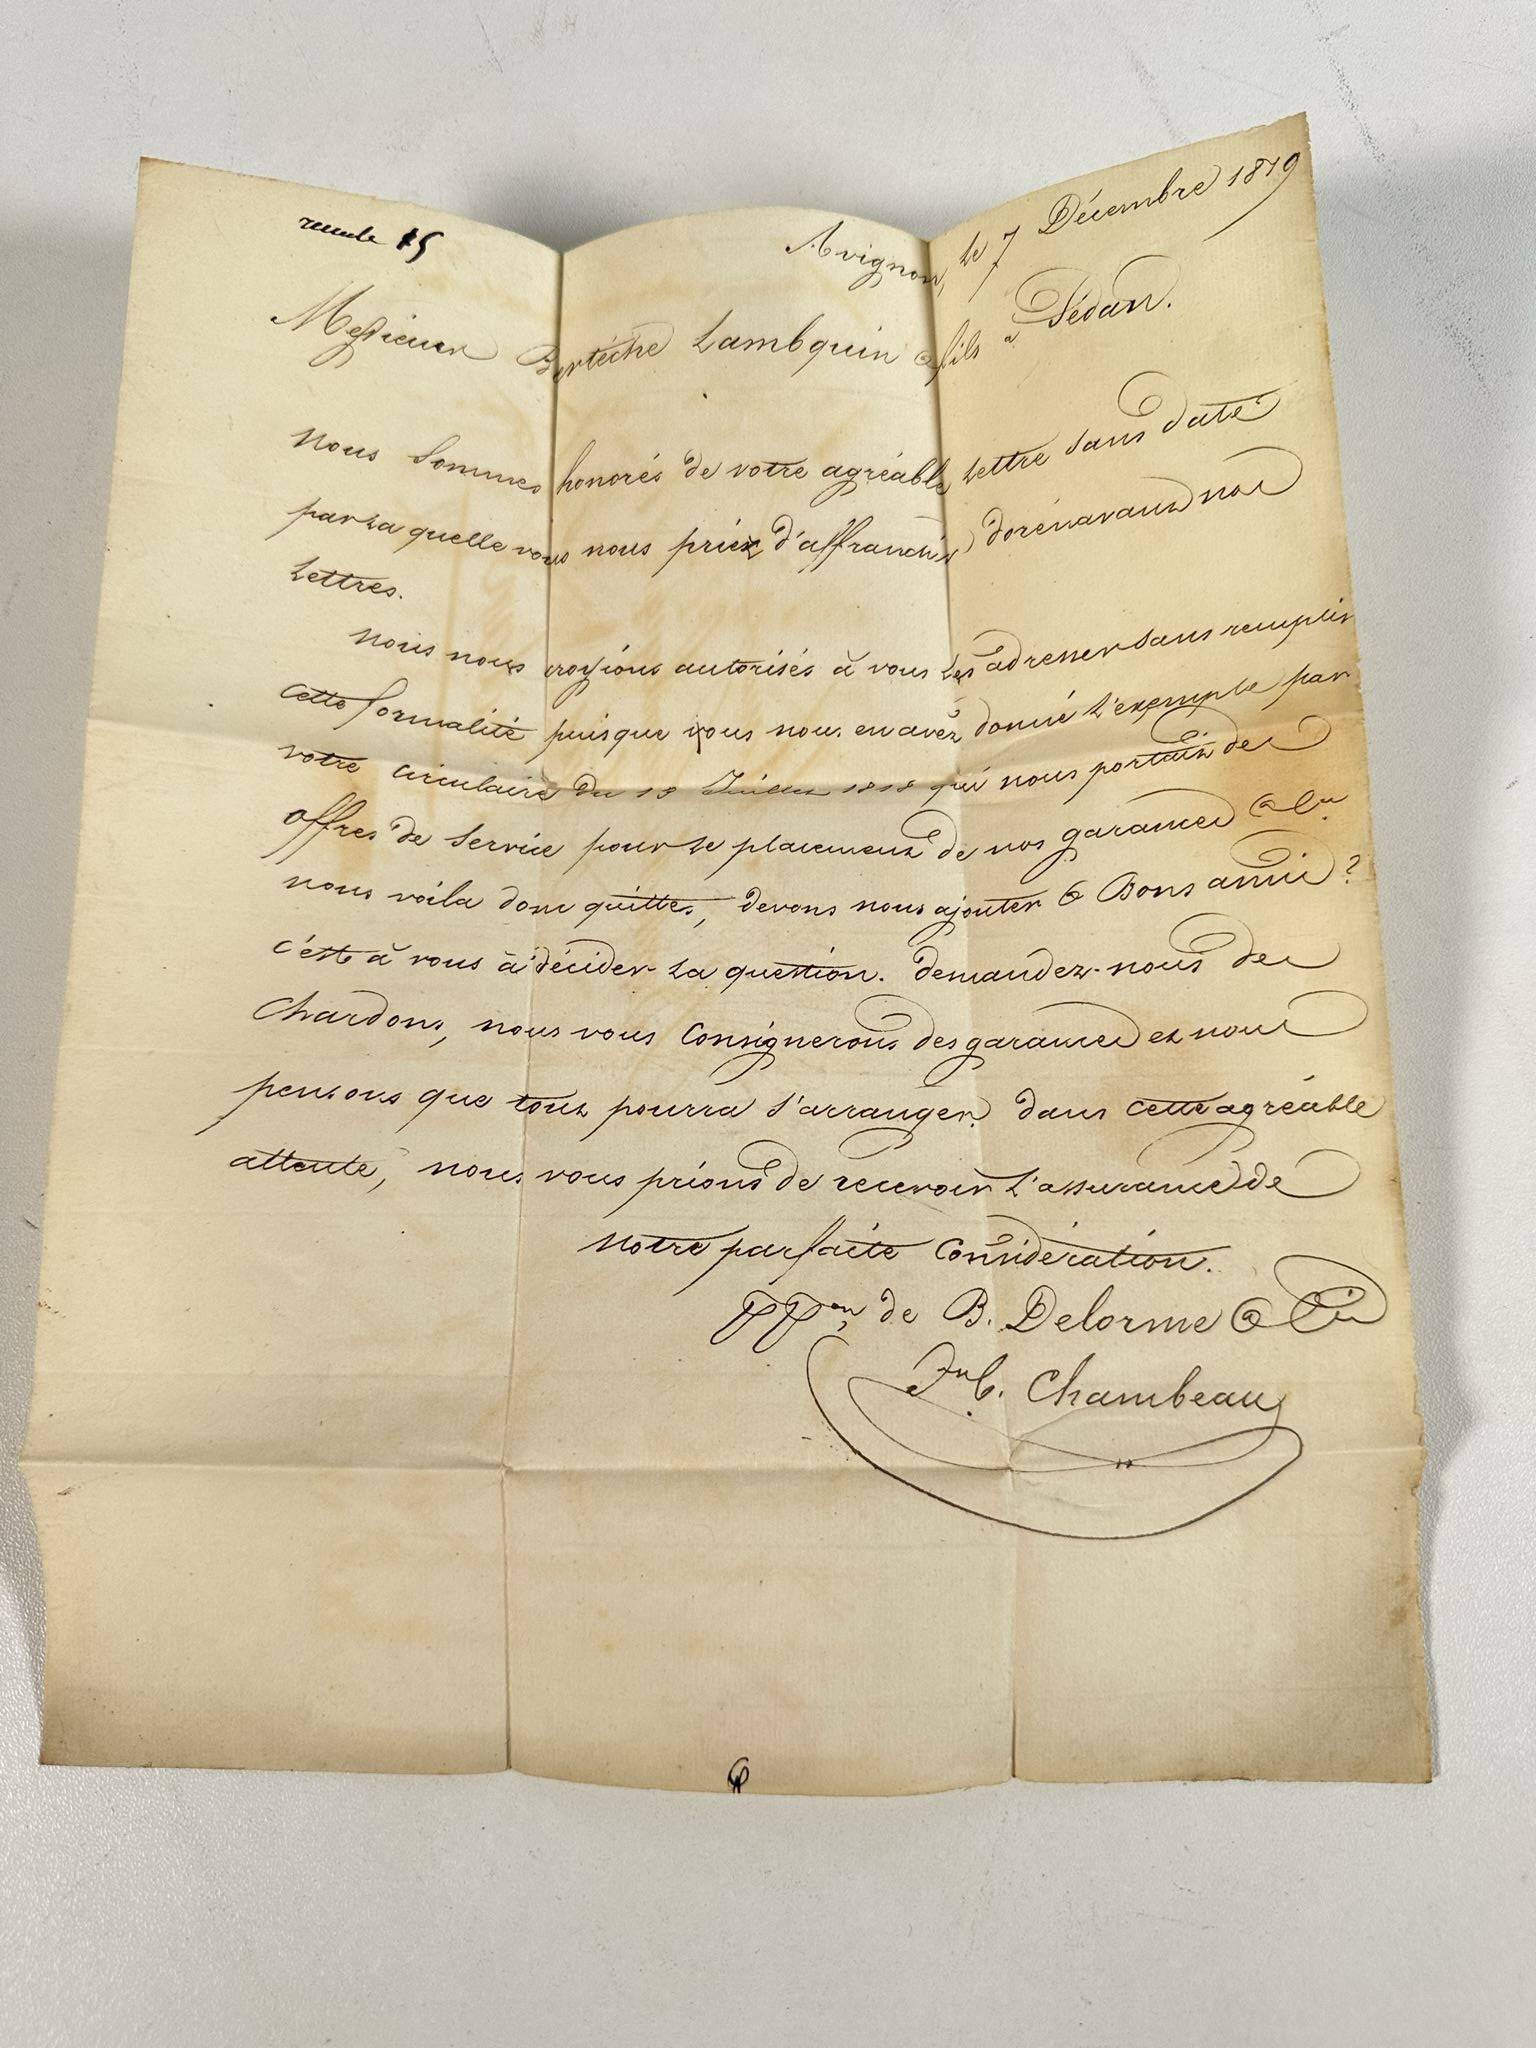 15
Avignon, Le 7 Décembre 1819
Messieurs Bertèche Lambquin & fils à Sédan.
Nous Sommes honorés de votre agréable Lettre sans daté
par La quelle vous nous priéz d'affranchir dorénavant nos
Lettres.
Nous nous croyions autorisés à vous Les adresser sans remplir
cette formalité puisque vous nous en avéz donné L'exemple par
votre circulaire du 13 Juillet 1818 qui nous portait des
offres de Service pour Le placement de nos garances &
nous voila donc quittes, devons nous ajouter & Bons amis?
c'est à vous à décider La question. demandez-nous des
Chardons, nous vous Consignerons des garances et nous
pensons que tout pourra s'arranger. dans cette agréable
attente, nous vous prions de recevoir L'assurance de
Notre parfaite Considération.
de B. Delorme & Cie
Chambeau